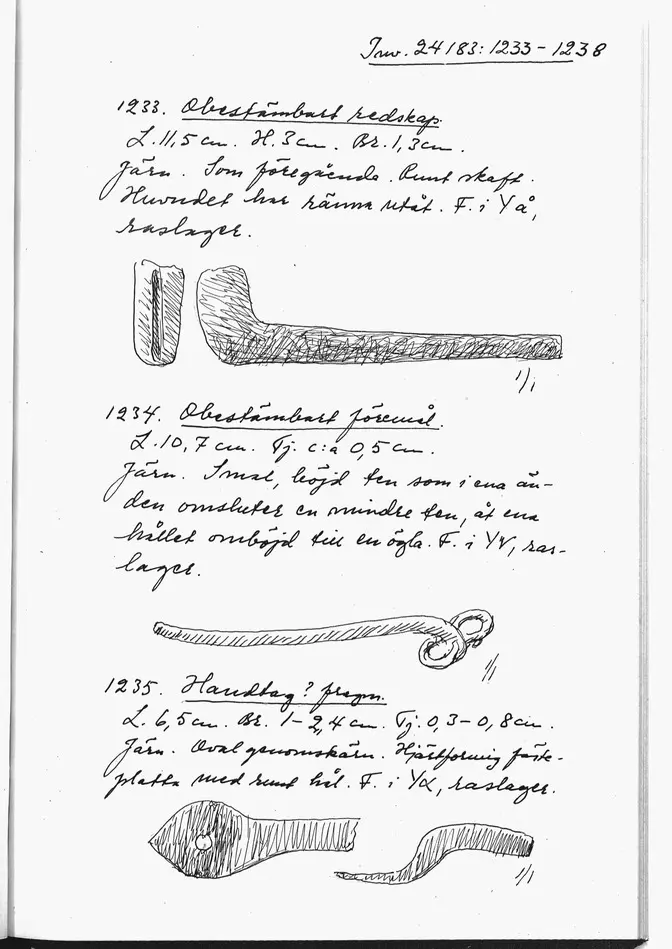 Inv. 24183:1233-1238
1233. Obestämbart redskap.
L. 11,5 cm. H. 3 cm. Br. 1,3 cm.
Järn. Som föregående. Runt skaft.
Huvudet har ränna utåt. F. i Yå,
raslager.
1/1
1234. Obestämbart föremål.
L. 10,7 cm. Tj. c:a 0,5 cm.
Järn. Smal, böjd ten som i ena än-
den omsluter en mindre ten, åt ena
hållet omböjd till en ögla. F. i YV, ras-
lager.
1/1
1235. Handtag? fragm.
L. 6,5 cm. Br. 1-2,4 cm. Tj. 0,3-0,8 cm.
Järn. Oval genomskärn. Hjärtformig fäste-
platta med runt hål. F. i Yα, raslager.
1/1